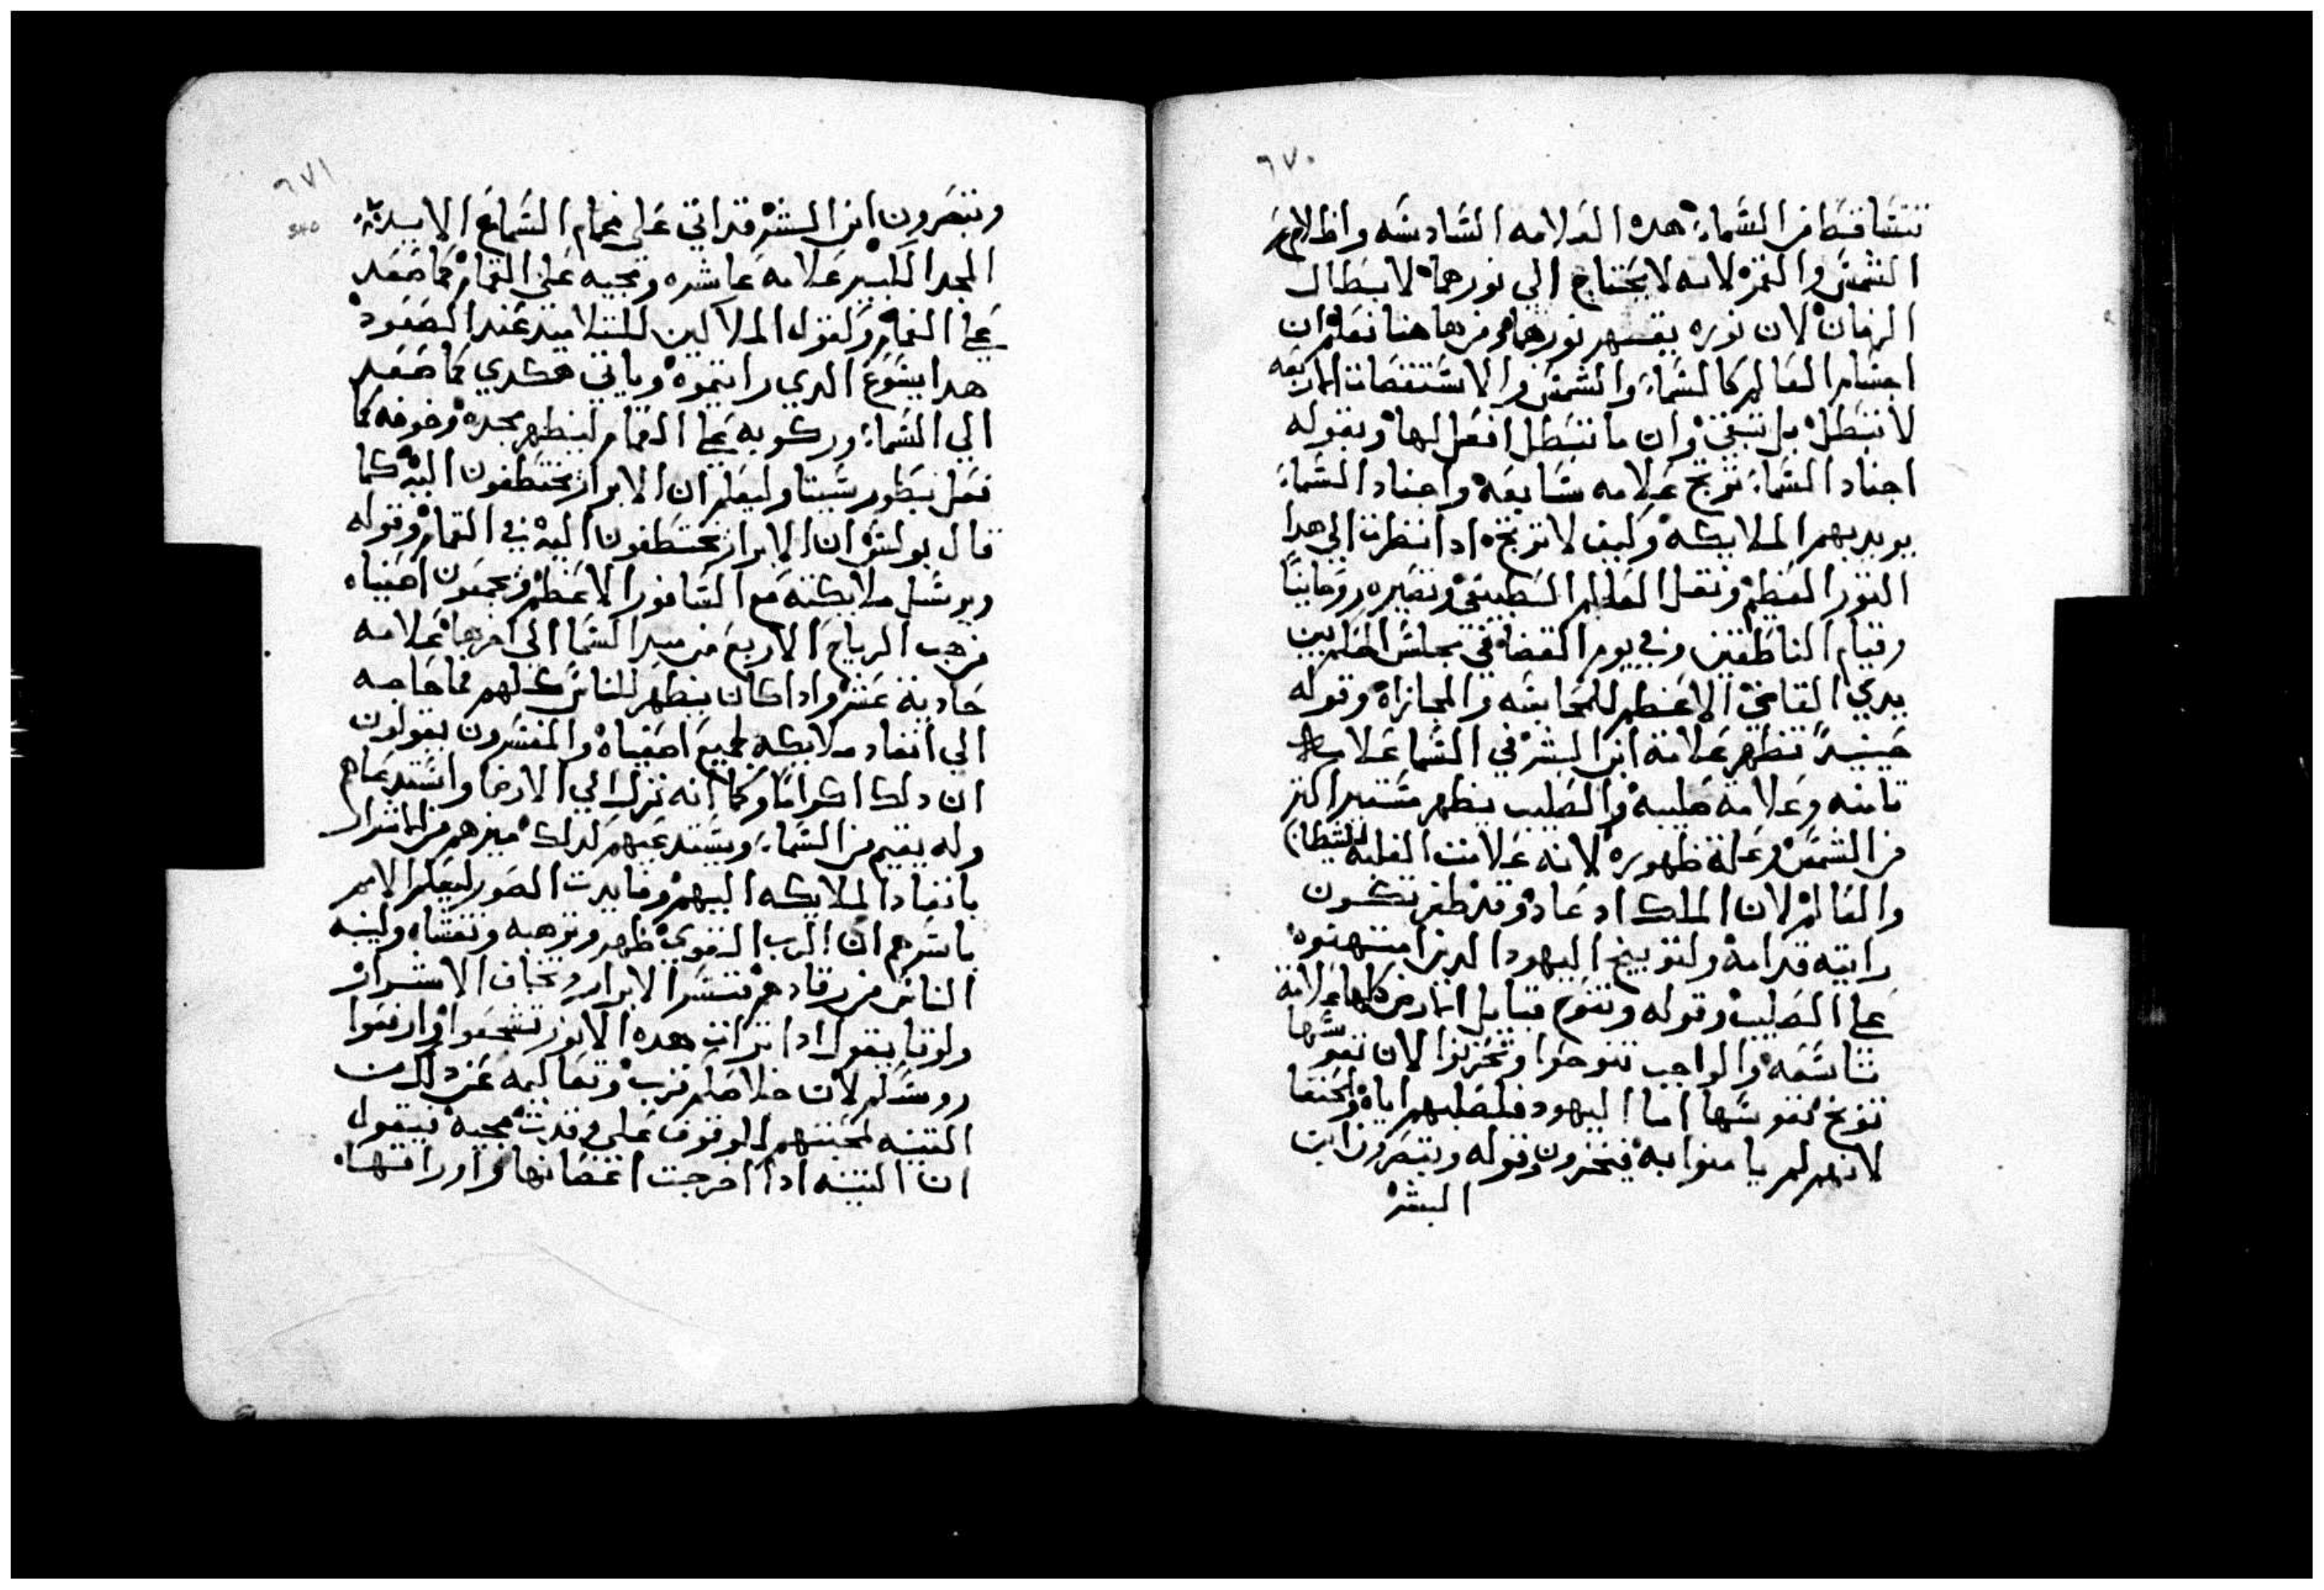 ٦٧٠
تتساقط من السماء هده العلامه السادسه واظلام
الشمس والقمر لانه لا يحتاج الي نورهما لا بطال
الزمان لان نوره يقهر نورهما ومن هاهنا نعلم ان
اجسام العالم كالسماء والشمس والاستقصات الاربعه
لا تبطل بل تبقي وان ما تبطل افعالها وبقوله
اجناد السماء ترتج علامه سابعه واجناد السماء
يريد بهم الملايكه وكيف لا ترتج ادا نظرت الي هدا
النور العظيم ونقل العالم الطبيعي وتغيره روحانيا
وقيام الناطقين وفي يوم القضا في مجلس
يدي القاضي الاعظم للمحاسبه والمجازاه وقوله
حينيد تظهر علامة ابن البشر في السما علامه
تامنه وعلامه صليبه والصليب يظهر مستنير اكتر
من الشمس وعلة ظهوره لانه علامت الغلبه للشيطان
والعالم لان الملك اد عاد وقد ظفر تكون
رايته قدامه ولتوبيخ اليهود الدين امتهنوه
علي الصليب وقوله وتنوح قبايل الارض كلها علامة
تاسعه والواجب تنوحوا وتحزنوا لان نفوسها
توبخ نفوسها اما اليهود فلصلبهم اياه والحنفا
لانهم لم يامنوا به فيحزنون وقوله ويبصرون ابن
البشر
٦٧١
340
وتبصرون ابن البشر قد اتي علي غمام السماء مع الايد و
المجد الكبير علامه عاشره ومجيه علي الغمام كما صعد
علي الغمام ولقول الملاكين للتلاميد عند الصعود
هدا يسوع الدي رايتموه وياتي هكدي كما صعد
الي السماء وركوبه علي الغمام ليظهر مجده وخوفه كما
فعل بطور سينا وليعلم ان الابرار يختطفون اليه كما
قال بولس ان الابرار يختطفون اليه في الغمام وقوله
ويرسل ملايكته مع السافور الاعظم ويجمعون اصفياه
من هب الرياح الاربع من مبدا السما الي اخرها علامه
حادية عشر وادا كان يظهر للناس كلهم فما حاجه
الي انفاد ملايكه لجميع اصفياه والمفسرون يقولون
ان دلك اكراما وكما انه نزل الي الارض واستدعاهم
وله يقيم من السماء ويستدعيهم لدلك ميزهم من الاشرار
بانفاد الملايكه اليهم وفايدت الصور ليعلم الامم
باسرهم ان الرب القوي ظهر وترهبه وتغشاه ولينبه
الناس من رقادهم فتسر الابرار وتخاف الاشرار
ولوقا يقول ادا تراات هده الامور تشجعوا وارفعوا
روسكم لان خلاصكم قرب وتعاليمه عن دلك من
التينه لمحبتهم الوقوف علي وقت مجيه فيقول
ان التينه ادا اخرجت اغصانها واوراقها